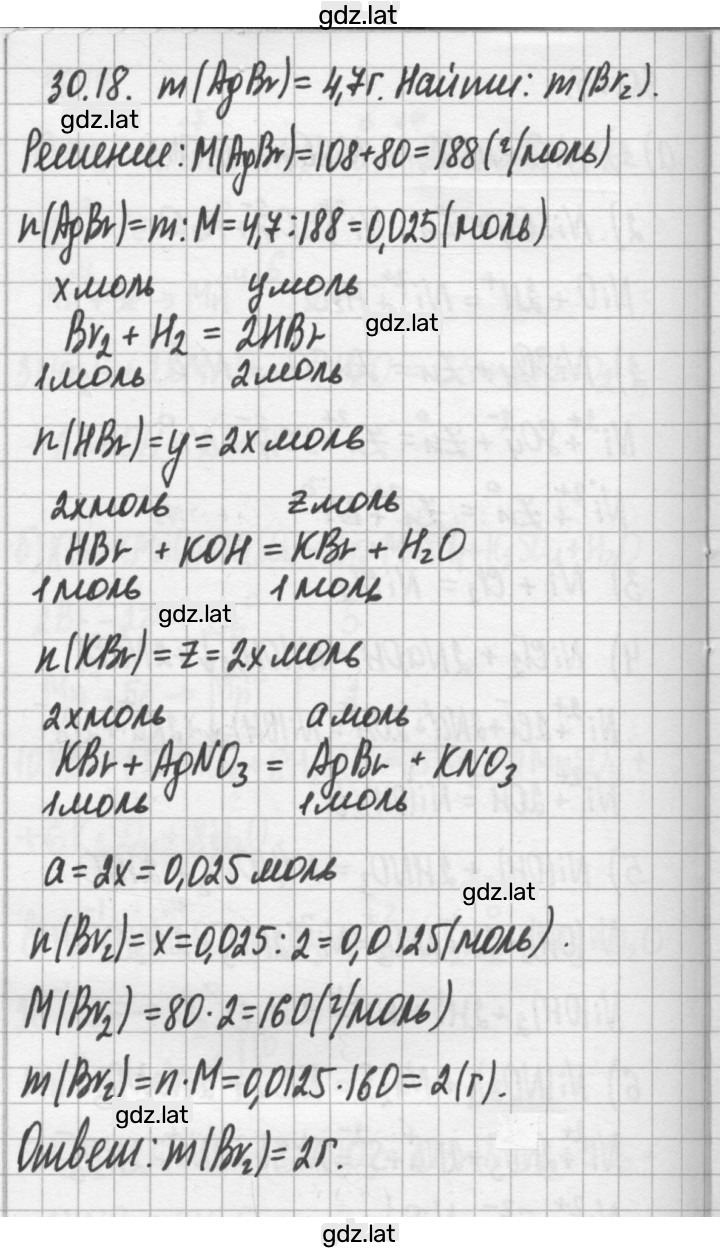 gdz.lat
30.18. m(AgBr)=4,7г. Найти: m(Br₂).
gdz.lat
Решение: M(AgBr)=108+80=188(г/моль)
n(AgBr)=m:M=4,7:188=0,025(моль)
x моль y моль
Br₂ + H₂ = 2HBr
gdz.lat
1 моль 2 моль
n(HBr)=y=2x моль
2x моль z моль
HBr + KOH = KBr + H₂O
1 моль 1 моль
gdz.lat
n(KBr)=z=2x моль
2x моль a моль
KBr + AgNO₃ = AgBr + KNO₃
1 моль 1 моль
a=2x=0,025 моль
gdz.lat
n(Br₂)=x=0,025:2=0,0125(моль).
M(Br₂)=80·2=160(г/моль)
m(Br₂)=n·M=0,0125·160=2(г).
gdz.lat
Ответ: m(Br₂)=2г.
gdz.lat